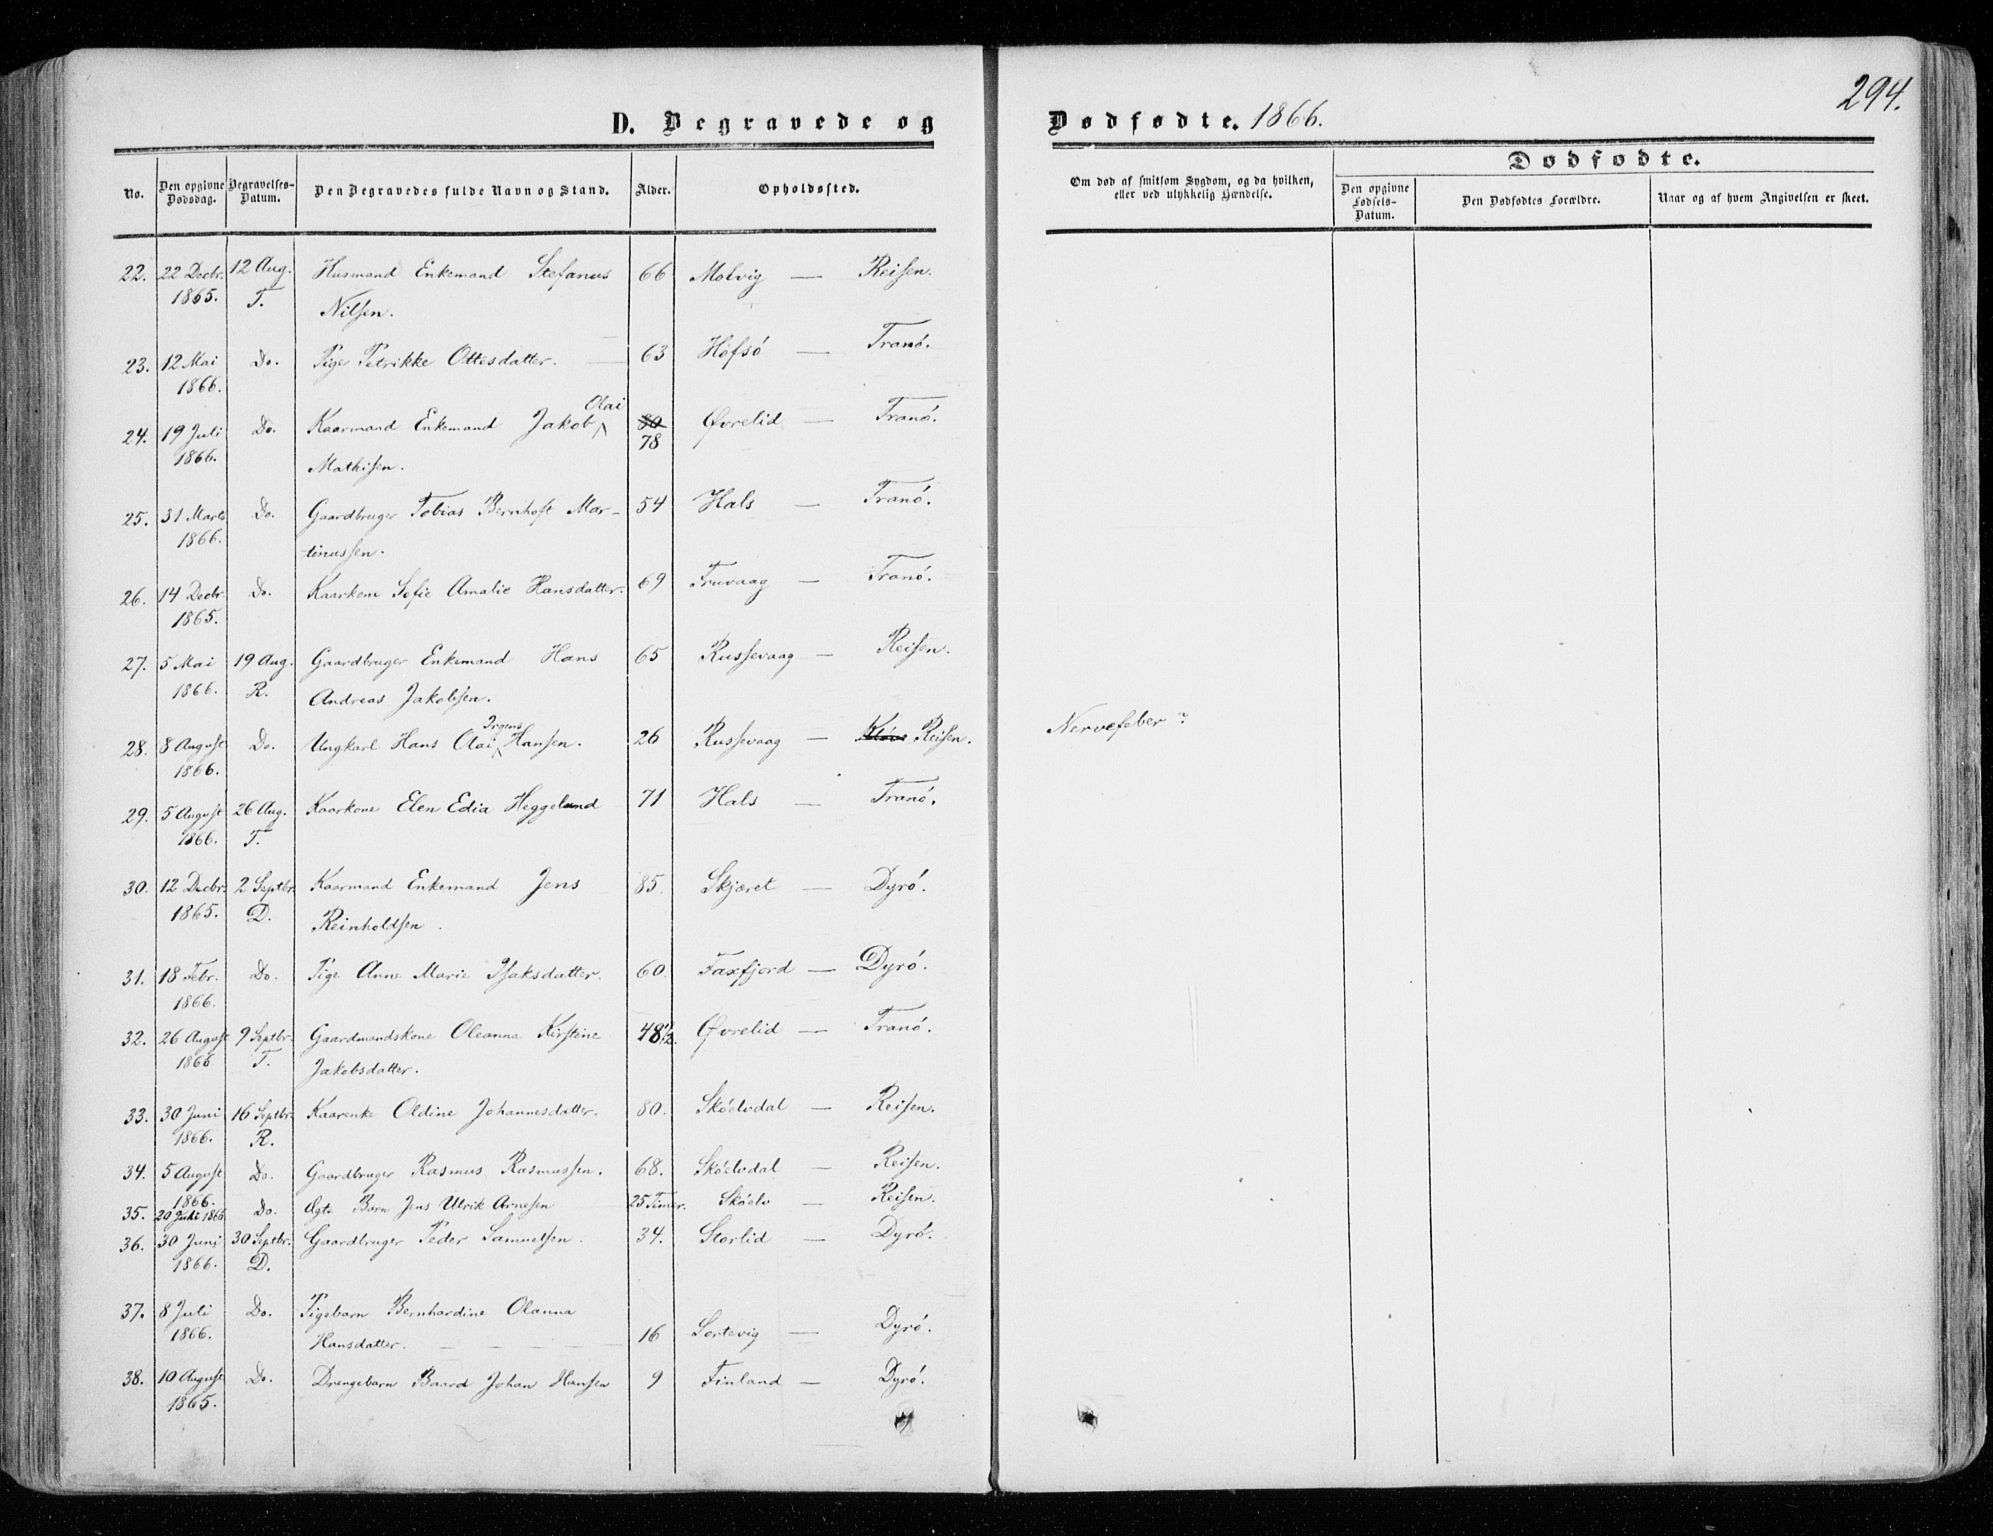 294.
D. Begravede og Dødfødte. 1866.
Dødfødte.
No. Den opgivne Dødsdag. Begravelses-Datum. Den Begravedes fulde Navn og Stand. Alder. Opholdssted. Om død af smitsom Sygdom, og da hvilken, eller ved ulykkelig Hændelse. Den opgivne Fødsels-Datum. Den Dødfødtes Forældre. Naar og af hvem Angivelsen er skeet.
22. 22 Decbr. 12 Aug. Husmand Enkemand Stefanus 66 Molvig — Reisen.
1865. T. Nilsen.
23. 12 Mai Do. Pige Petrikke Ottesdatter. 63 Hofsø — Tranø.
1866.
Olai
24. 19 Juli Do. Kaarmand Enkemand Jakob 80 Øvrelid — Tranø.
1866. Mathisen. 78
25. 31 Marts Do. Gaardbruger Tobias Bernhoft Mar- 54 Hals — Tranø.
1866. tinussen.
26. 14 Decbr. Do. Kaarkone Sofie Amalie Hansdatter. 69 Fruvaag — Tranø.
1865.
27. 5 Mai 19 Aug. Gaardbruger Enkemand Hans 65 Russevaag — Reisen.
1866. R. Andreas Jakobsen.
Irgens
28. 8 August Do. Ungkarl Hans Olai Hansen. 26 Russevaag — Reisen. Nervefeber ?
1866.
29. 5 August 26 Aug. Kaarkone Elen Edia Heggelund 71 Hals — Tranø.
1866. T.
30. 12 Decbr. 2 Septbr. Kaarmand Enkemand Jens 85. Skjæret — Dyrø.
1865. D. Reinholdsen.
31. 18 Febr. Do. Pige Anne Marie Isaksdatter. 60. Faxfjord — Dyrø.
1866.
32. 26 August 9 Septbr. Gaardmandskone Oleanna Kirstine 48 1/2. Øvrelid — Tranø.
1866 T. Jakobsdatter.
33. 30 Juni 16 Septbr. Kaarenke Oldine Johannesdatter. 80. Skøelvdal — Reisen.
1866. R.
34. 5 August Do. Gaardbruger Rasmus Rasmussen. 68. Skøelvdal — Reisen.
1866.
35. 20 Juli 1866 Do. Ægte Barn Jens Ulrik Arnesen 25 Timer. Skøelv — Reisen.
36. 30 Juni 30 Septbr. Gaardbruger Peder Samuelsen. 34. Storlid — Dyrø.
1866. D.
37. 8 Juli Do. Pigebarn Bernhardine Olanna
1866. Hansdatter. 16 Sortevig — Dyrø.
38. 10 August Do. Drengebarn Baard Johan Hansen 9 Finland — Dyrø.
1865.